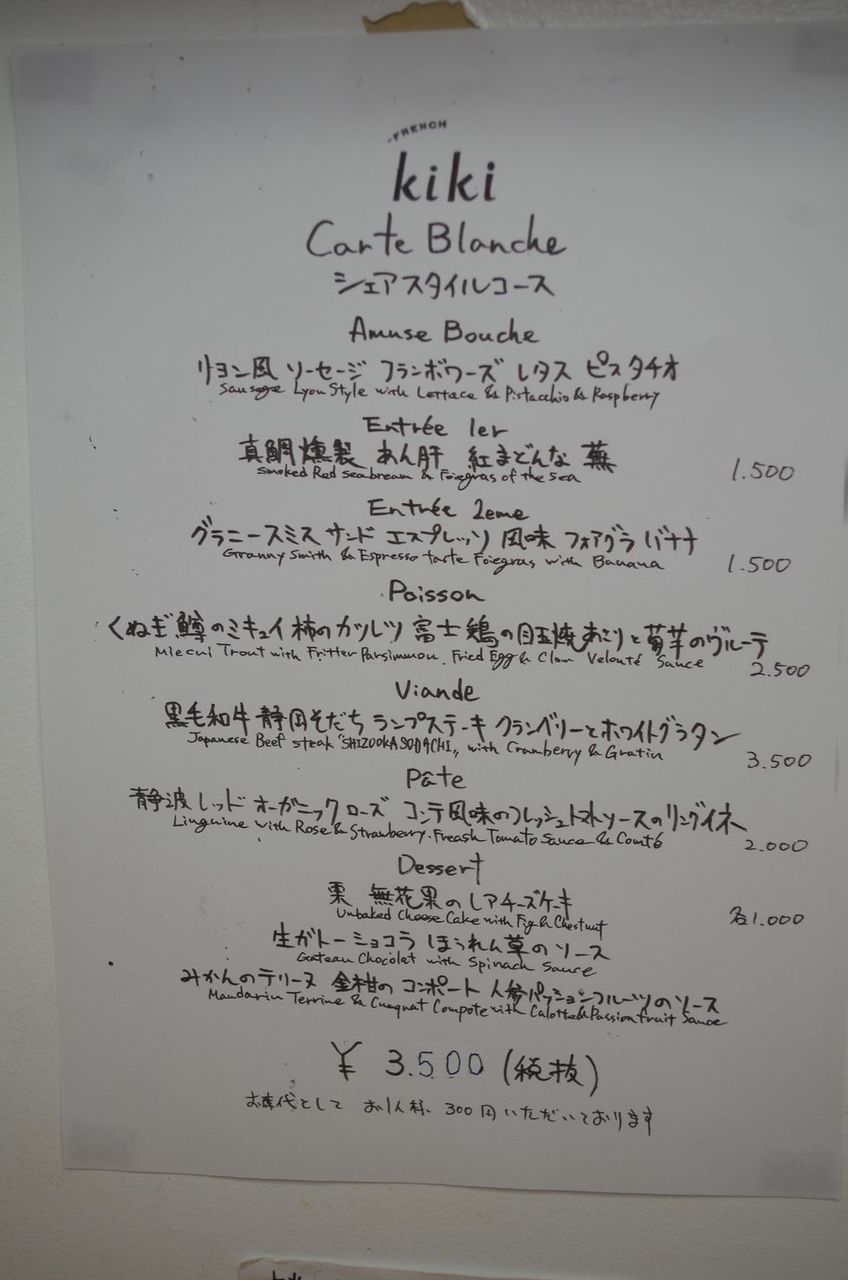 FRENCH
kiki
Carte Blanche
シェアスタイルコース
Amuse Bouche
リヨン風 ソーセージ フランボワーズ レタス ピスタチオ
Sausage Lyon Style with Lettace & Pistacchio & Raspberry
Entrée 1er
真鯛燻製 あん肝 紅まどんな 蕪
Smoked Red seabream & Foiegras of the sea 1.500
Entrée 2eme
グラニースミス サンド エスプレッソ風味 フォアグラ バナナ
Granny Smith & Espresso taste Foiegras with Banana 1.500
Poisson
くぬぎ鱒のミキュイ 柿のカツレツ 富士鶏の目玉焼 あさりと菊芋のヴルーテ
Miecui Trout with Fritter Parsimmon. Fried Egg & Clam Velouté Sauce 2.500
Viande
黒毛和牛 静岡そだち ランプステーキ クランベリーとホワイトグラタン
Japanese Beef steak "SHIZOOKASODACHI" with Cramberry & Gratin 3.500
Pâte
静波レッド オーガニックローズ コンテ風味のフレッシュトマトソースのリングイネ
Linguine with Rose & Strawberry. Freash Tomato Sauce & Comté 2.000
Dessert
栗 無花果のレアチーズケーキ
Unbaked Cheese Cake with Fig & Chestnut 各1.000
生ガトーショコラ ほうれん草のソース
Gateau Chocolat with Spinach Sauce
みかんのテリーヌ 金柑のコンポート 人参パッションフルーツのソース
Mandarin Terrine & Cumquat Compote with Calotte & Passion fruit Sauce
¥ 3.500 (税抜)
お席代として お1人様、300円いただいております